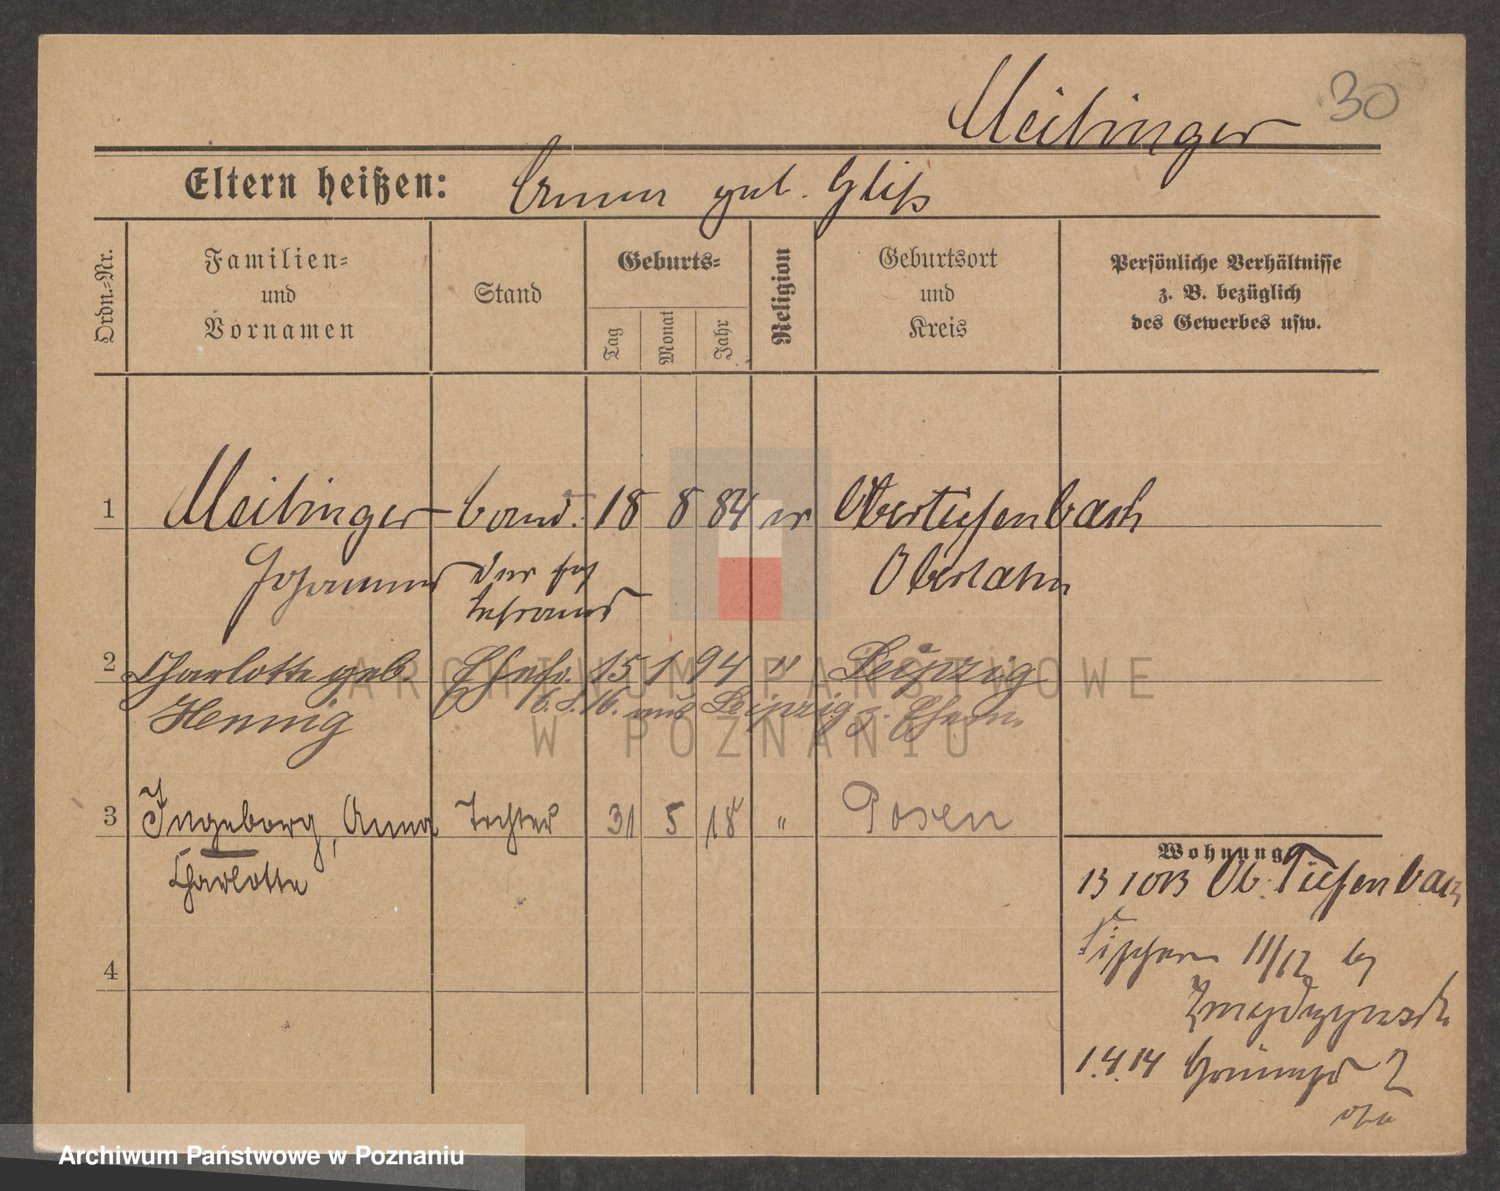 Meilinger
30
Eltern heißen: geb. Gliß
Ordn.-Nr.
Familien-
und
Vornamen
Stand
Geburts-
Tag
Monat
Jahr
Religion
Geburtsort
und
Kreis
Persönliche Verhältnisse
z. B. bezüglich
des Gewerbes usw.
1 Meilinger cand. 18 8 84 ev Obertiefenbach
Johannes der hoh Oberlahn
Lehramts
2 Charlotte geb. Ehefr. 15 1 94 " Leipzig
Hennig aus Leipzig z. Ehem.
3 Ingeborg, Anna Tochter 31 5 18 " Posen
Charlotte
4
Wohnung
13 10 13 Ob. Tiefenbach
11/12 bei
1.4.14 2
ARCHIWUM PAŃSTWOWE
W POZNANIU
Archiwum Państwowe w Poznaniu